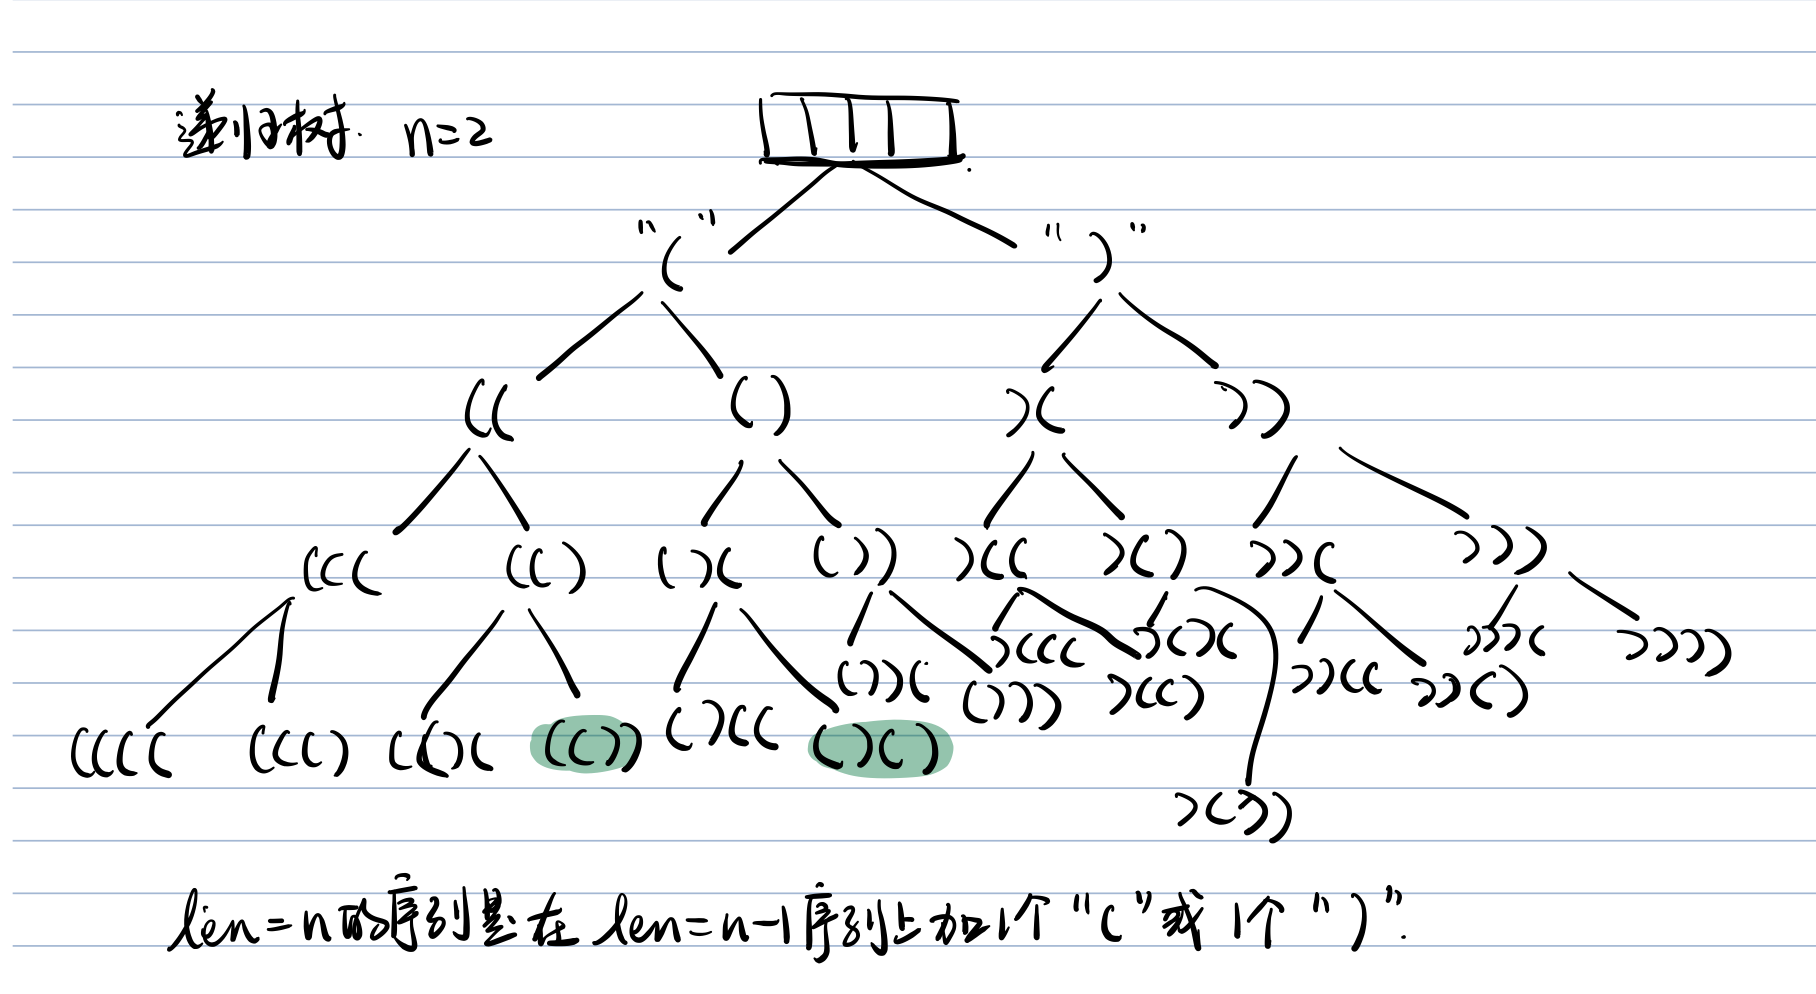 递归树. n=2
"(" ")"
(( () )( ))
((( (() ()( ()) )(( )() ))( )))
())( )((( )()( )))( ))))
()(( ())) )(() ))(( ))()
(((( ((() (()( (()) ()()
)())
len=n的序列是在 len=n-1序列上加1个"("或1个")".